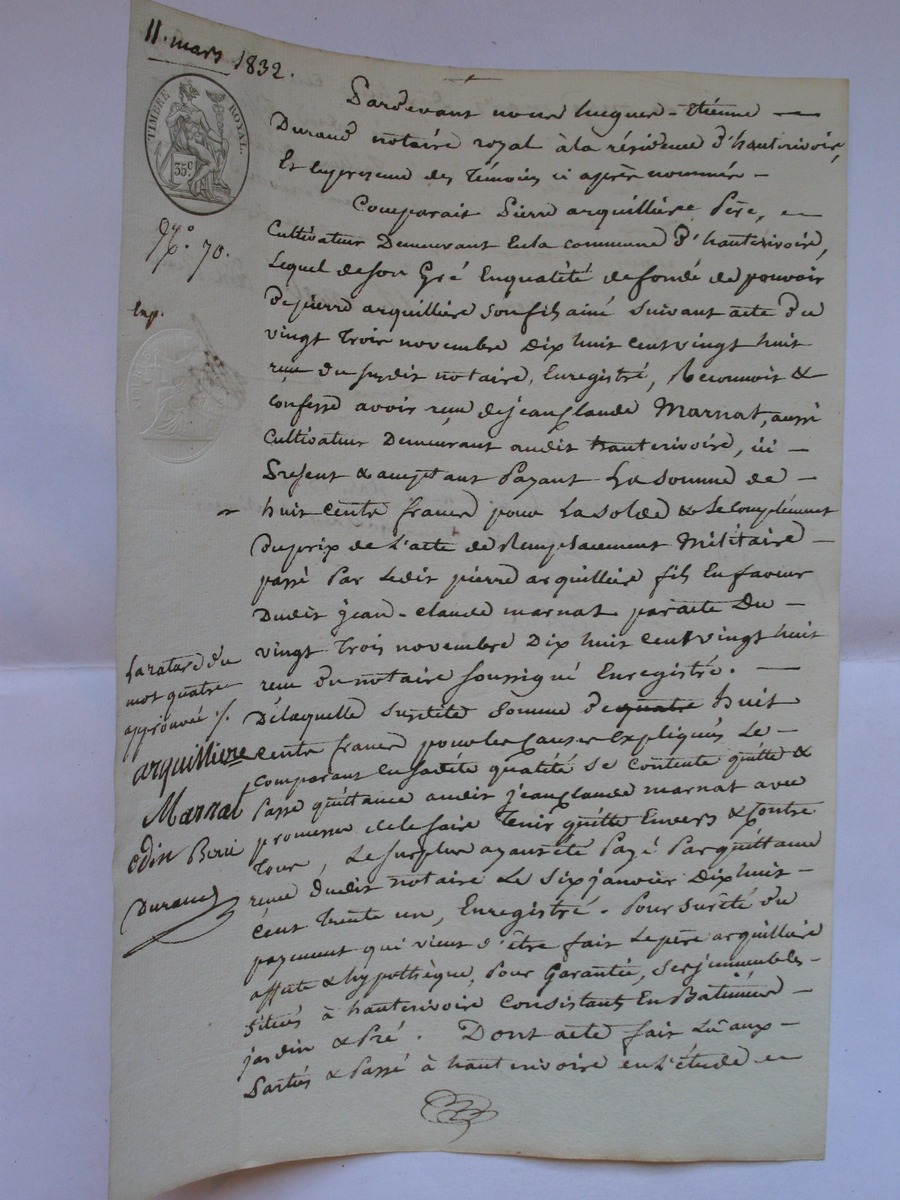 11. mars 1832.
TIMBRE ROYAL.
35c
70.
Exp.
Pardevant nous hugues-Etienne
Durand notaire royal à la résidence d'hauterivoire,
Et en presence des Témoins ci après nommés
Comparait Pierre arquilliere Père,
Cultivateur Demeurant En la commune d'hauterivoire,
Lequel de son Gré En qualité de fondé de pouvoir
De pierre arquillière son fils ainé suivant acte du
vingt Trois novembre Dix huit cent vingt huit
reçu du susdit notaire, Enregistré, Reconnoit &
Confesse avoir reçu de jean Claude Marnat, aussi
Cultivateur Demeurant audit hauterivoire, ici
Present & acceptant Payant La somme de
huit cents francs pour La solde & Le Complément
Du prix de L'acte de Remplacement Militaire
passé Par Ledit pierre arquillière fils En faveur
Dudit jean-claude marnat par acte Du
vingt Trois novembre Dix huit Cent vingt huit
reçu Du notaire soussigné Enregistré.
De laquelle susdite somme de quatre huit
cents francs pour les Causes Expliqués Le
comparant en sadite qualité se contente quitte &
Passe quittance audit jean Claude marnat avec
promesse de le faire Tenir quitte Envers & Contre
Tous, Le surplus ayant été Payé Par quittance
reçue dudit notaire Le Six janvier Dix huit
Cent Trente un, Enregistré. Pour sûreté du
payement qui vient d'être fait Le père arquillière
affecte & hypothèque, Pour Garantie, ses immeubles
Situés à hauterivoire Consistants En Batiments
jardin & Pré. Dont acte fait Lû aux
Parties & Passé à hauterivoire en L'étude
La rature du
mot quatre
approuvée
arquilliere
Marnat
odin
Durand